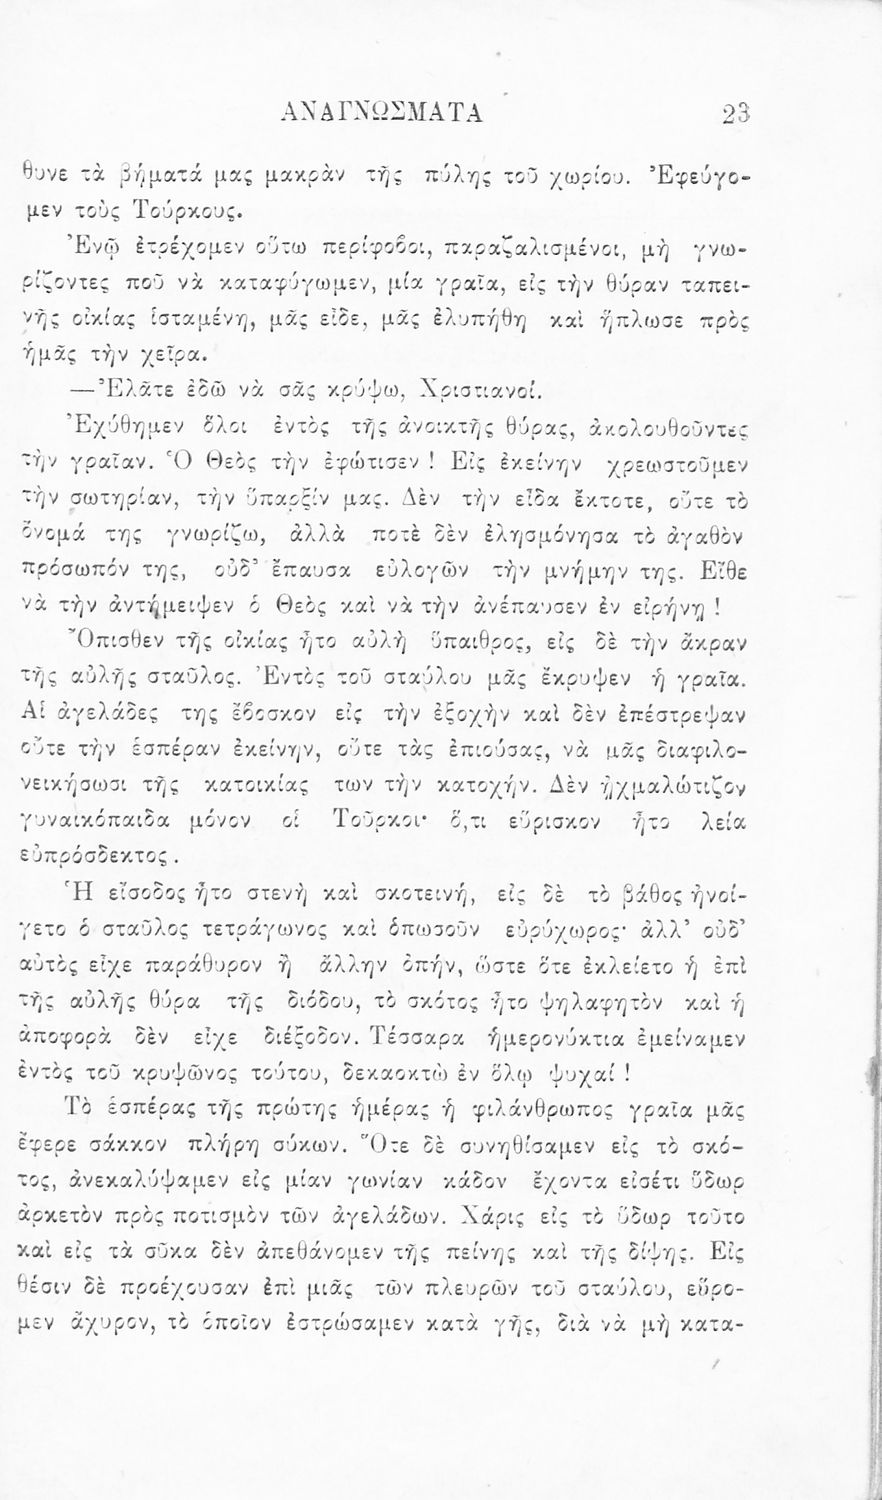 ΑΝΑΓΝΩΣΜΑΤΑ 23
θυνε τὰ βήματά μας μακρὰν τῆς πύλης τοῦ χωρίου. Ἐφεύγο-
μεν τοὺς Τούρκους.
Ἐνῷ ἐτρέχομεν οὕτω περίφοβοι, παραζαλισμένοι, μὴ γνω-
ρίζοντες ποῦ νὰ καταφύγωμεν, μία γραῖα, εἰς τὴν θύραν ταπει-
νῆς οἰκίας ἱσταμένη, μᾶς εἶδε, μᾶς ἐλυπήθη καὶ ἥπλωσε πρὸς
ἡμᾶς τὴν χεῖρα.
—Ἐλᾶτε ἐδῶ νὰ σᾶς κρύψω, Χριστιανοί.
Ἐχύθημεν ὅλοι ἐντὸς τῆς ἀνοικτῆς θύρας, ἀκολουθοῦντες
τὴν γραῖαν. Ὁ Θεὸς τὴν ἐφώτισεν ! Εἰς ἐκείνην χρεωστοῦμεν
τὴν σωτηρίαν, τὴν ὕπαρξίν μας. Δὲν τὴν εἶδα ἔκτοτε, οὔτε τὸ
ὄνομά της γνωρίζω, ἀλλὰ ποτὲ δὲν ἐλησμόνησα τὸ ἀγαθὸν
πρόσωπόν της, οὐδ' ἔπαυσα εὐλογῶν τὴν μνήμην της. Εἴθε
νὰ τὴν ἀντήμειψεν ὁ Θεὸς καὶ νὰ τὴν ἀνέπαυσεν ἐν εἰρήνῃ !
Ὄπισθεν τῆς οἰκίας ἦτο αὐλὴ ὕπαιθρος, εἰς δὲ τὴν ἄκραν
τῆς αὐλῆς σταῦλος. Ἐντὸς τοῦ σταύλου μᾶς ἔκρυψεν ἡ γραῖα.
Αἱ ἀγελάδες της ἔβοσκον εἰς τὴν ἐξοχὴν καὶ δὲν ἐπέστρεψαν
οὔτε τὴν ἑσπέραν ἐκείνην, οὔτε τὰς ἐπιούσας, νὰ μᾶς διαφιλο-
νεικήσωσι τῆς κατοικίας των τὴν κατοχήν. Δὲν ᾐχμαλώτιζον
γυναικόπαιδα μόνον οἱ Τοῦρκοι· ὅ,τι εὕρισκον ἦτο λεία
εὐπρόσδεκτος.
Ἡ εἴσοδος ἦτο στενὴ καὶ σκοτεινή, εἰς δὲ τὸ βάθος ἠνοί-
γετο ὁ σταῦλος τετράγωνος καὶ ὁπωσοῦν εὐρύχωρος· ἀλλ' οὐδ'
αὐτὸς εἶχε παράθυρον ἢ ἄλλην ὀπήν, ὥστε ὅτε ἐκλείετο ἡ ἐπὶ
τῆς αὐλῆς θύρα τῆς διόδου, τὸ σκότος ἦτο ψηλαφητὸν καὶ ἡ
ἀποφορὰ δὲν εἶχε διέξοδον. Τέσσαρα ἡμερονύκτια ἐμείναμεν
ἐντὸς τοῦ κρυψῶνος τούτου, δεκαοκτὼ ἐν ὅλῳ ψυχαί !
Τὸ ἑσπέρας τῆς πρώτης ἡμέρας ἡ φιλάνθρωπος γραῖα μᾶς
ἔφερε σάκκον πλήρη σύκων. Ὅτε δὲ συνηθίσαμεν εἰς τὸ σκό-
τος, ἀνεκαλύψαμεν εἰς μίαν γωνίαν κάδον ἔχοντα εἰσέτι ὕδωρ
ἀρκετὸν πρὸς ποτισμὸν τῶν ἀγελάδων. Χάρις εἰς τὸ ὕδωρ τοῦτο
καὶ εἰς τὰ σῦκα δὲν ἀπεθάνομεν τῆς πείνης καὶ τῆς δίψης. Εἰς
θέσιν δὲ προέχουσαν ἐπὶ μιᾶς τῶν πλευρῶν τοῦ σταύλου, εὕρο-
μεν ἄχυρον, τὸ ὁποῖον ἐστρώσαμεν κατὰ γῆς, διὰ νὰ μὴ κατα-